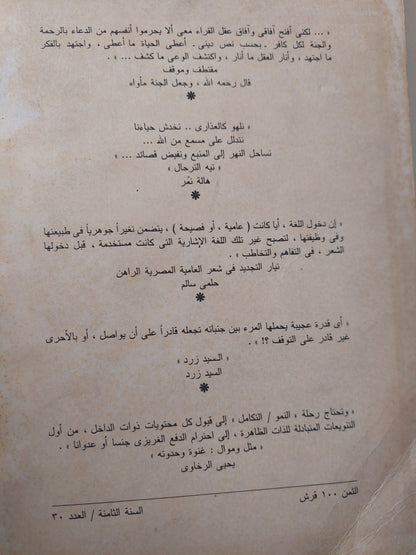 « ... لكنى أفتح آفاقى وآفاق عقل القراء معى ألا يحرموا أنفسهم من الدعاء بالرحمة
والجنة لكل كافر .. بحسب نص دينى .. أعطى الحياة ما أعطى ، واجتهد بالفكر
ما اجتهد ، وأنار العقل ما أنار ، واكتشف الوعى ما كشف ... » .
مقتطف وموقف
قال رحمه الله ، وجعل الجنة مأواه
نلهو كالعذارى .. نخدش حياءنا
نتدلل على مسمع من الله ...
نساحل النهر إلى المنبع ونفيض قصائد ... »
« تيه الترحال »
هالة نمر
« إن دخول اللغة ، أيا كانت ( عامية ، أو فصيحة ) ، يتضمن تغيراً جوهرياً فى طبيعتها
وفى وظيفتها ، لتصبح غير تلك اللغة الإشارية التى كانت مستخدمة ، قبل دخولها
الشعر ، فى التفاهم والتخاطب » .
تيار التجديد فى شعر العامية المصرية الراهن
حلمى سالم
« أى قدرة عجيبة يحملها المرء بين جنباته تجعله قادراً على أن يواصل ، أو بالأحرى
غير قادر على التوقف ؟! » .
« السيد زرد »
السيد زرد
« وتحتاج رحلة « النمو / التكامل » إلى قبول كل محتويات ذوات الداخل ، من أول
التنويعات المتبادلة للذات الظاهرة ، إلى احترام الدفع الغريزى جنسا أو عدوانا » .
« مثل وموال : غنوة وحدوته »
يحيى الرخاوى
الثمن ١٠٠ قرش
السنة الثامنة / العدد ٣٠